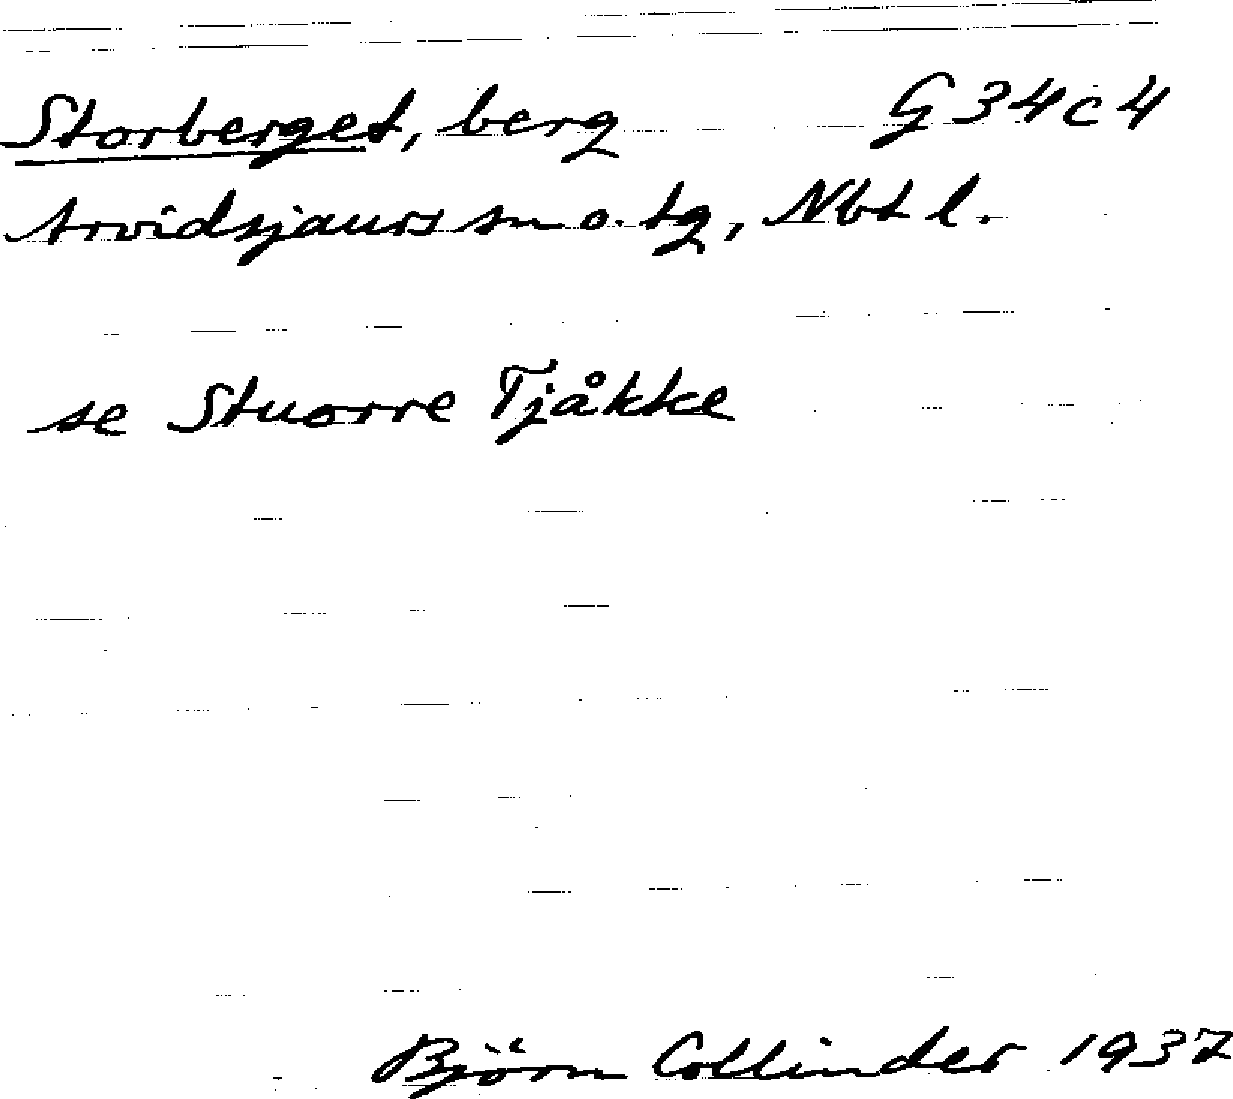 Storberget, berg G 34 c 4
Arvidsjaurs sn o. tg, Nbt l.
se Stuorre Tjåkke
Björn Collinder 1937